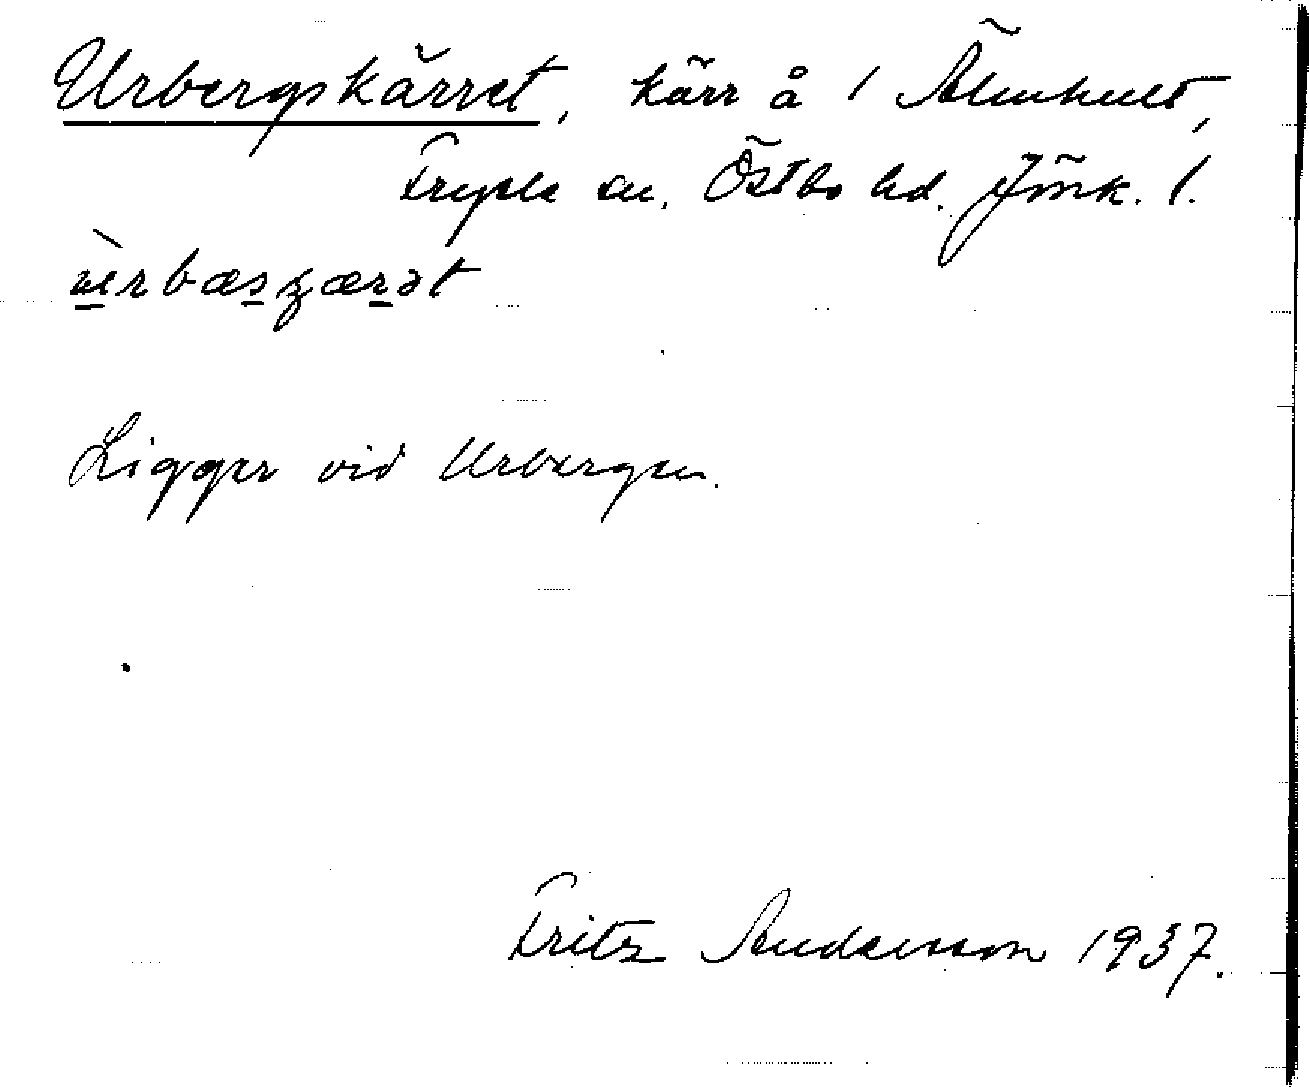 Urbergskärret, kärr å 1 Älmhult,
Fryele sn. Östbo hd. Jönk. l.
ùrbæsʒærət
Ligger vid Urbergen.
Fritz Andersson 1937.